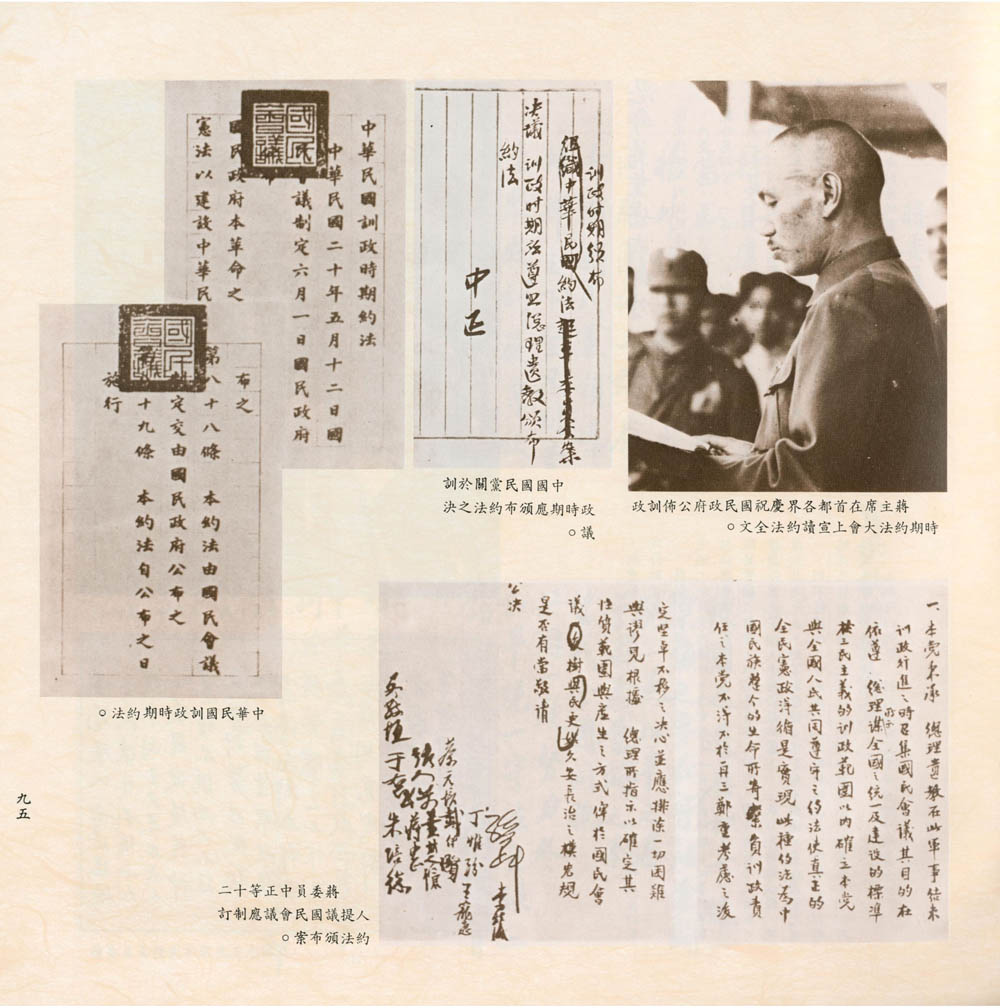 蔣主席在首都各界慶祝國民政府公佈訓政
時期約法大會上宣讀約法全文。
訓政時期頒布
組織中華民國約法
決議 訓政時期應遵照總理遺教頒布
約法
中正
中國國民黨關於訓
政時期應頒布約法之決
議。
國民會議
中華民國訓政時期約法
中華民國二十年五月十二日國
議制定六月一日國民政府
國民政府本革命之
憲法以建設中華民
國民會議
布之
第八十八條 本約法由國民會議
定交由國民政府公布之
十九條 本約法自公布之日
施行
中華民國訓政時期約法。
一、本党秉承 總理遺教在此軍事結束
訓政行進之時召集國民會議其目的在
依遵 總理謀全國之統一及建設的標準
於三民主義的訓政範圍以內確立本党
與全國人民共同遵守之約法使真正的
全民憲政得循是實現此種約法為中
國民族整个的生命所寄繫負訓政責
任之本党不得不於再三鄭重考慮之後
定堅卓不移之決心並應排除一切困難
與謬見根據 總理所指示以確定其
性質範圍與產生之方式俾於國民會
議樹與民更始久安長治之模岩規
是否有當敬請
公決
丁惟汾
王寵惠
蔡元培
戴傳賢
張人傑
蔣中正
于右任
吳敬恆
朱培德
蔣委員中正等十二
人提議國民會議應制訂
約法頒布案。
九五